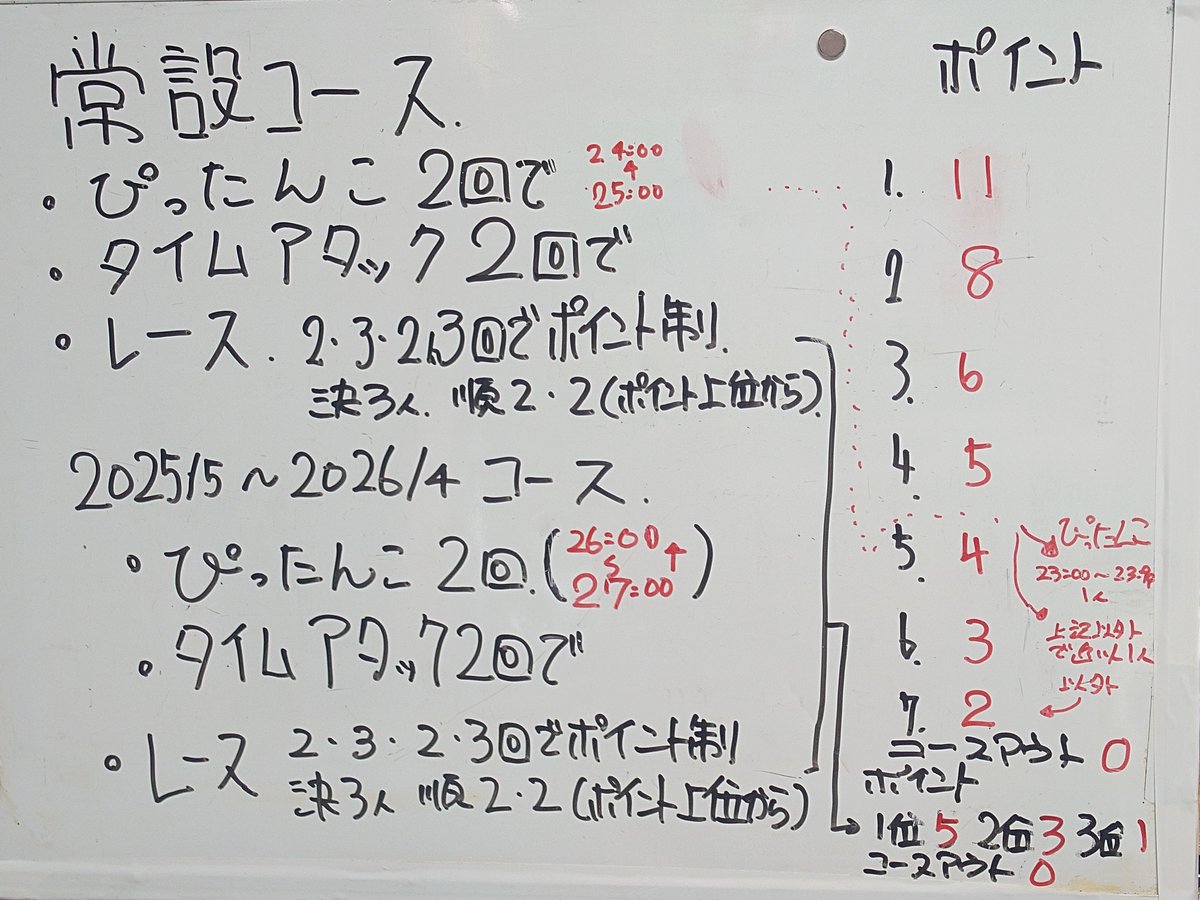 常設コース.
・ぴったんこ 2回で 24:00
25:00
・タイムアタック2回で
・レース. 2・3・2,3回でポイント制.
決3人. 順2・2(ポイント上位から).
2025/5～2026/4 コース.
・ぴったんこ2回.(26:00
27:00↑)
・タイムアタック2回で
・レース 2・3・2・3回でポイント制
決3人 順2・2(ポイント上位から)
ポイント
1. 11
2 8
3. 6
4. 5
5. 4
6. 3
7. 2
コースアウト 0
ぴったんこ
23:00～
1人
上記以外
で近い1人
以外
ポイント
1位5 2位3 3位1
コースアウト 0